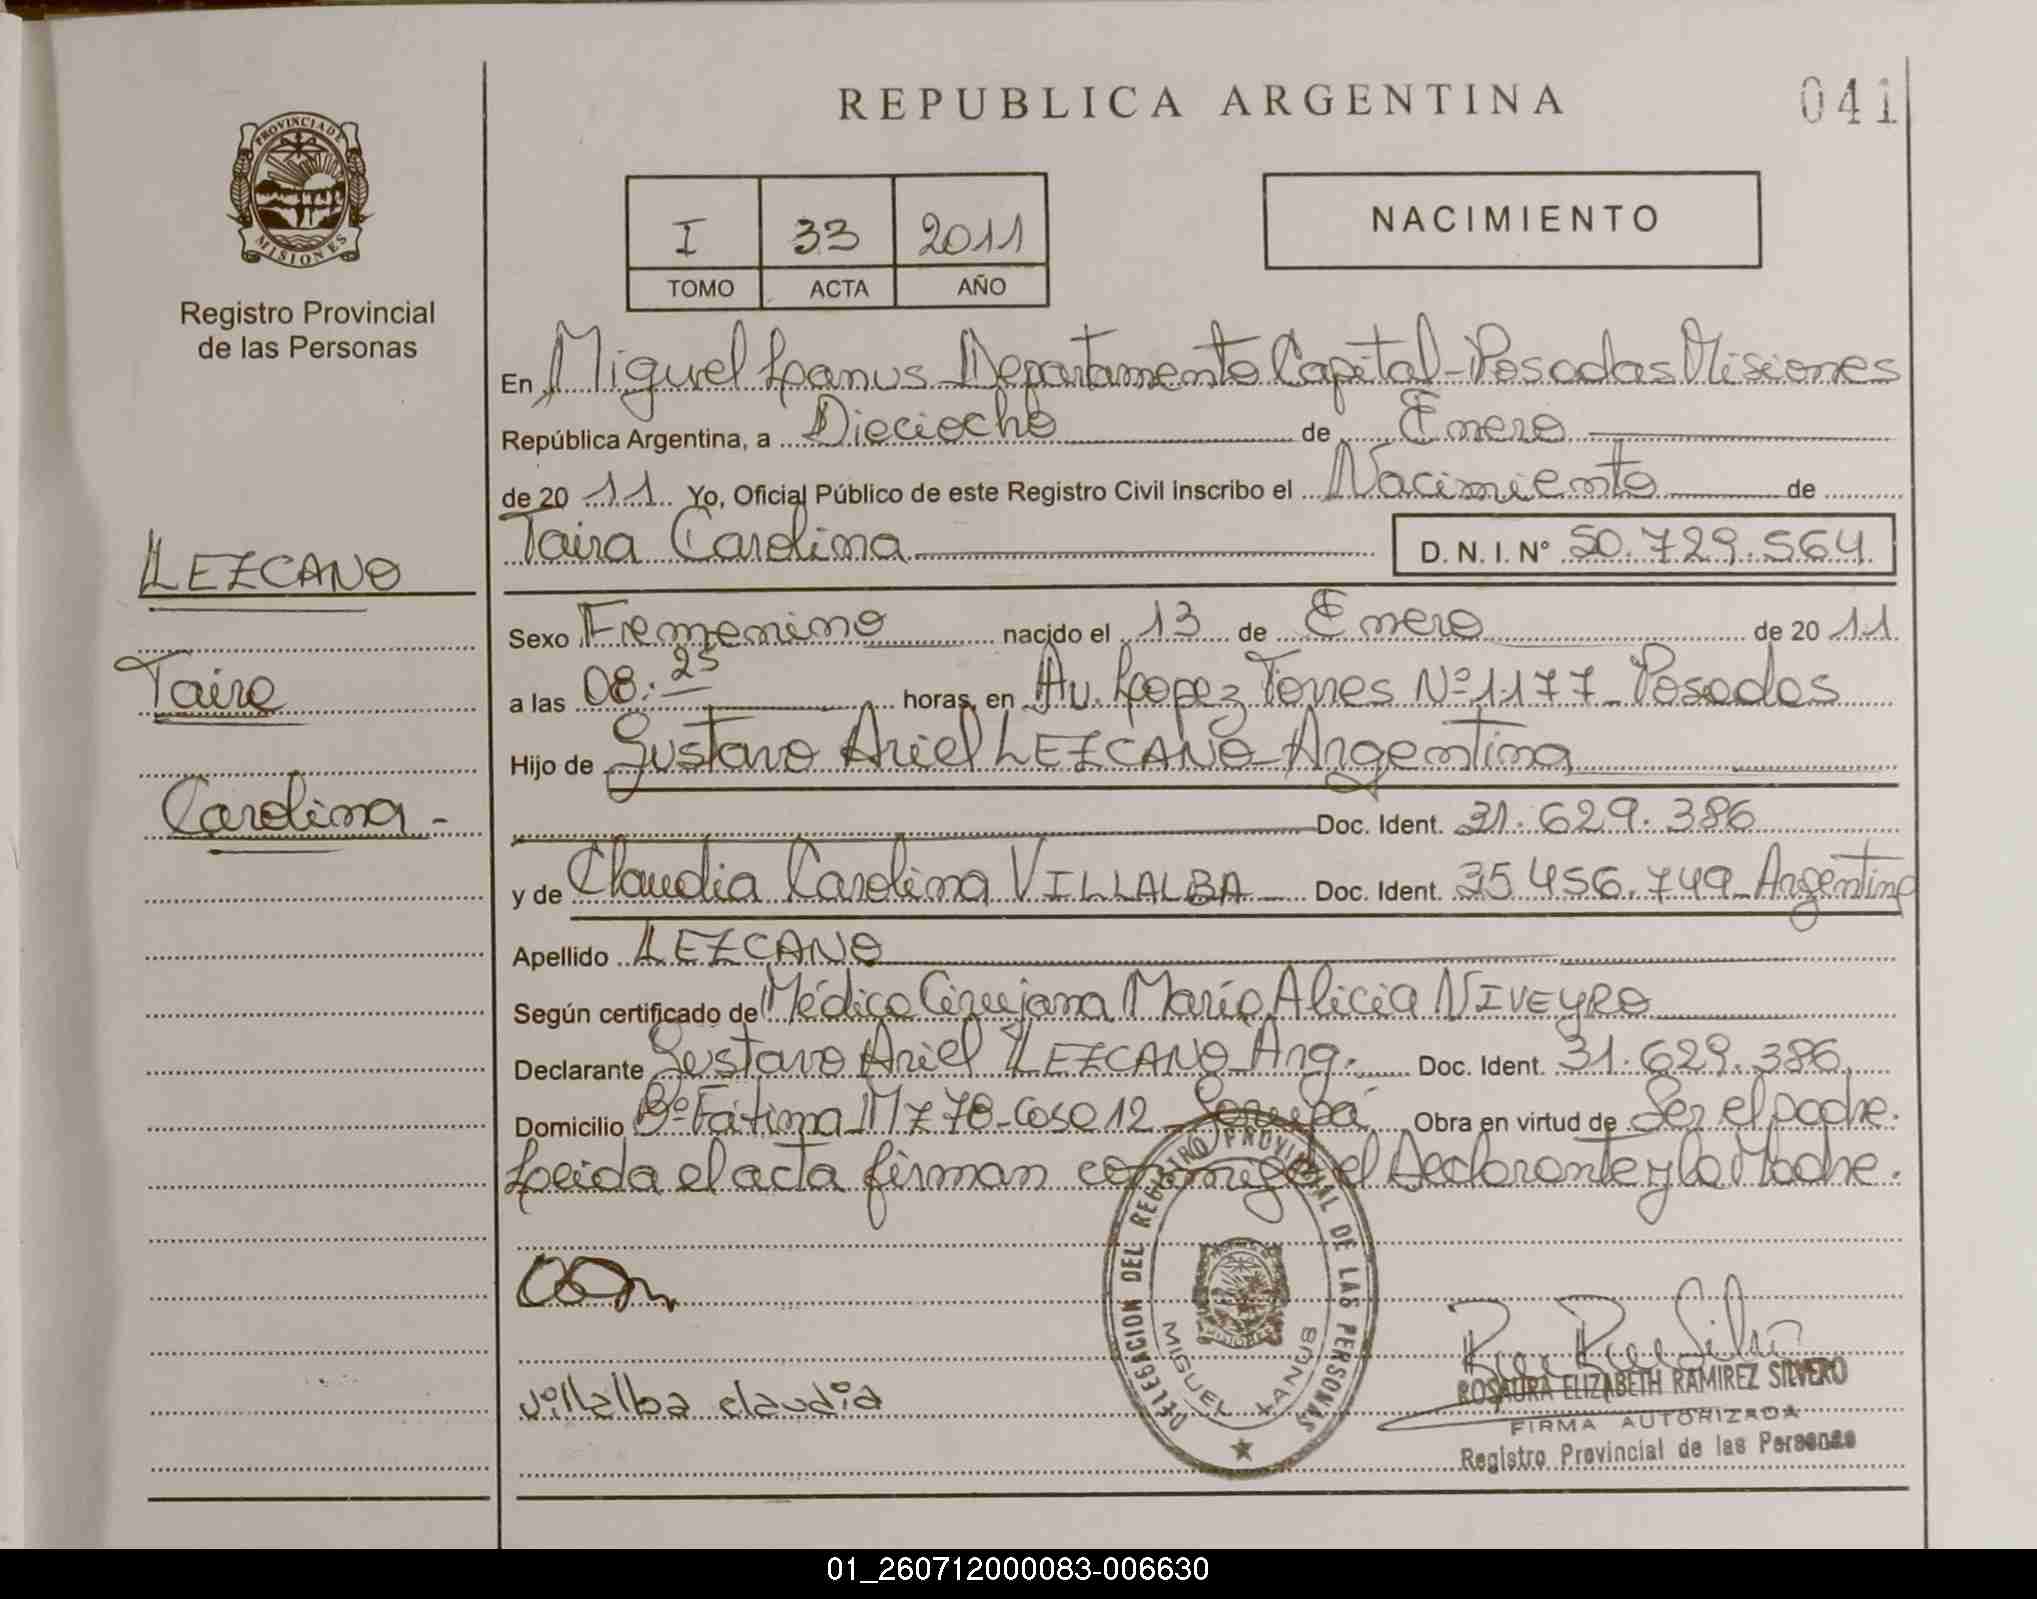 REPUBLICA ARGENTINA
041
PROVINCIA DE
MISIONES
Registro Provincial
de las Personas
I 33 2011
TOMO ACTA AÑO
NACIMIENTO
En Miguel Lanus Departamento Capital - Posadas Misiones
República Argentina, a Dieciocho de Enero
de 20 11 Yo, Oficial Público de este Registro Civil inscribo el Nacimiento de
Taira Carolina
D. N. I. Nº 50.729.564
LEZCANO
Taira
Carolina -
Sexo Femenino nacido el 13 de Enero de 20 11
a las 08:25 horas, en Av. Lopez Torres Nº 1177 - Posadas
Hijo de Gustavo Ariel LEZCANO - Argentina
Doc. Ident. 31.629.386
y de Claudia Carolina VILLALBA Doc. Ident. 35.456.749 - Argentina
Apellido LEZCANO
Según certificado de Médico Cirujana María Alicia NIVEYRO
Declarante Gustavo Ariel LEZCANO - Arg. Doc. Ident. 31.629.386
Domicilio Bº Fátima Mz 78 - Casa 12 - Garupá Obra en virtud de Ser el padre.
Leida el acta firman conmigo el Declarante y la Madre.
DELEGACION DEL REGISTRO PROVINCIAL DE LAS PERSONAS
MIGUEL LANUS
villalba claudia
ROSAURA ELIZABETH RAMIREZ SILVERO
FIRMA AUTORIZADA
Registro Provincial de las Personas
01_260712000083-006630